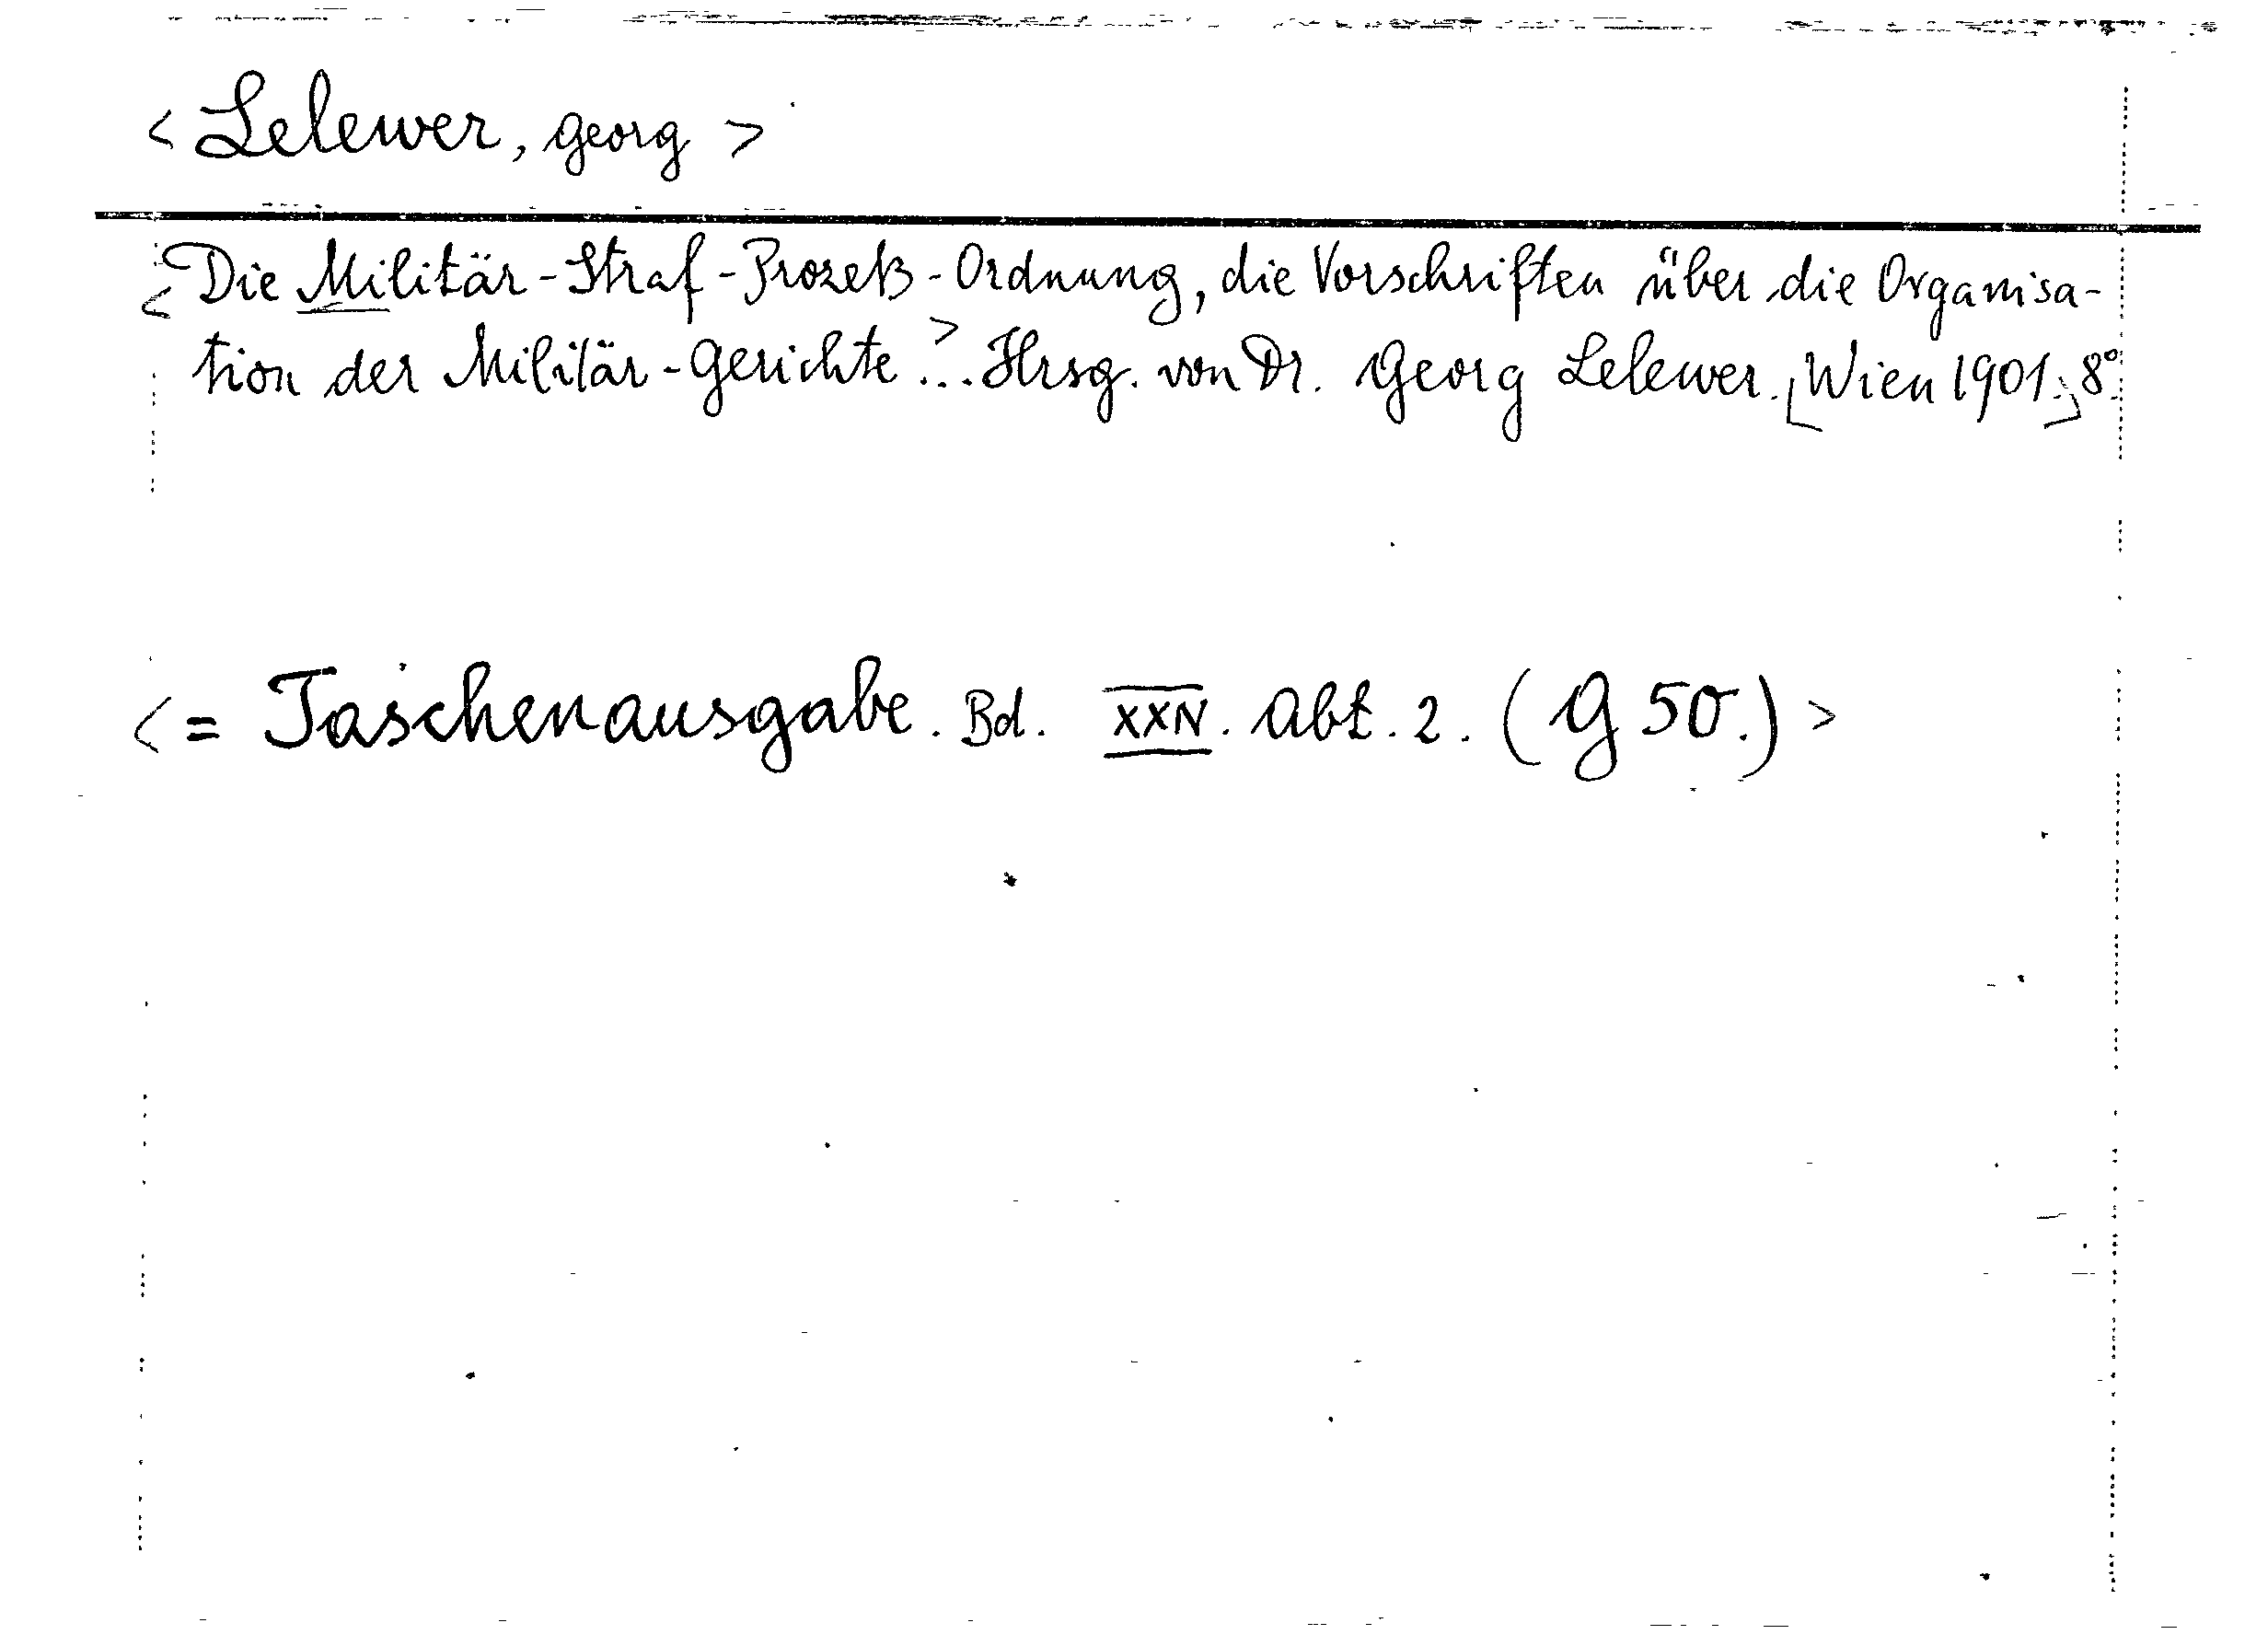 < Lelewer, Georg >
< Die Militär-Straf-Prozeß-Ordnung, die Vorschriften über die Organisa-
tion der Militär-Gerichte >... Hrsg. von Dr. Georg Lelewer. [Wien 1901.] 8°.
< = Taschenausgabe. Bd. XXIV. Abt. 2. (G 50.) >